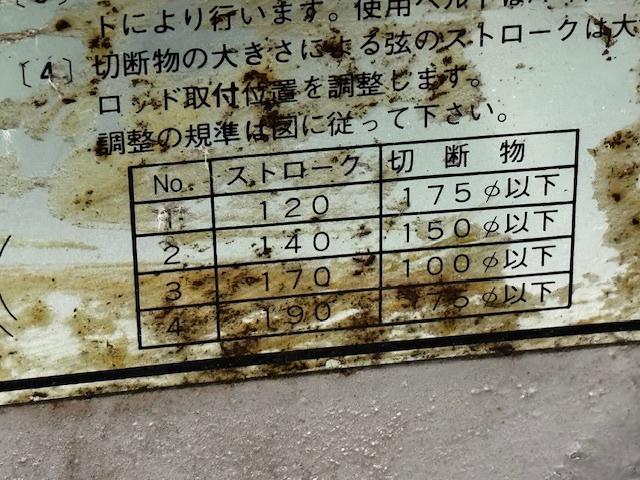 トにより行います。使用ベルトは
〔4〕 切断物の大きさによる弦のストロークは大
ロッド取付位置を調整します。
調整の規準は図に従って下さい。
No. ストローク 切断物
1 120 175φ以下
2 140 150φ以下
3 170 100φ以下
4 190 75φ以下